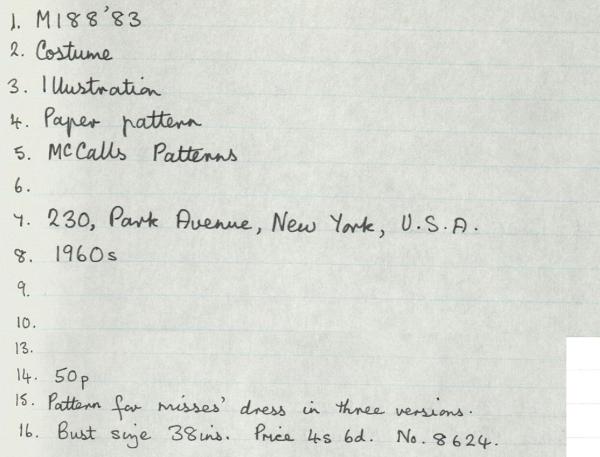 1. M188'83
2. Costume
3. Illustration
4. Paper pattern
5. McCalls Patterns
6.
7. 230, Park Avenue, New York, U.S.A.
8. 1960s
9.
10.
13.
14. 50p
15. Pattern for misses' dress in three versions.
16. Bust size 38ins. Price 4s 6d. No. 8624.